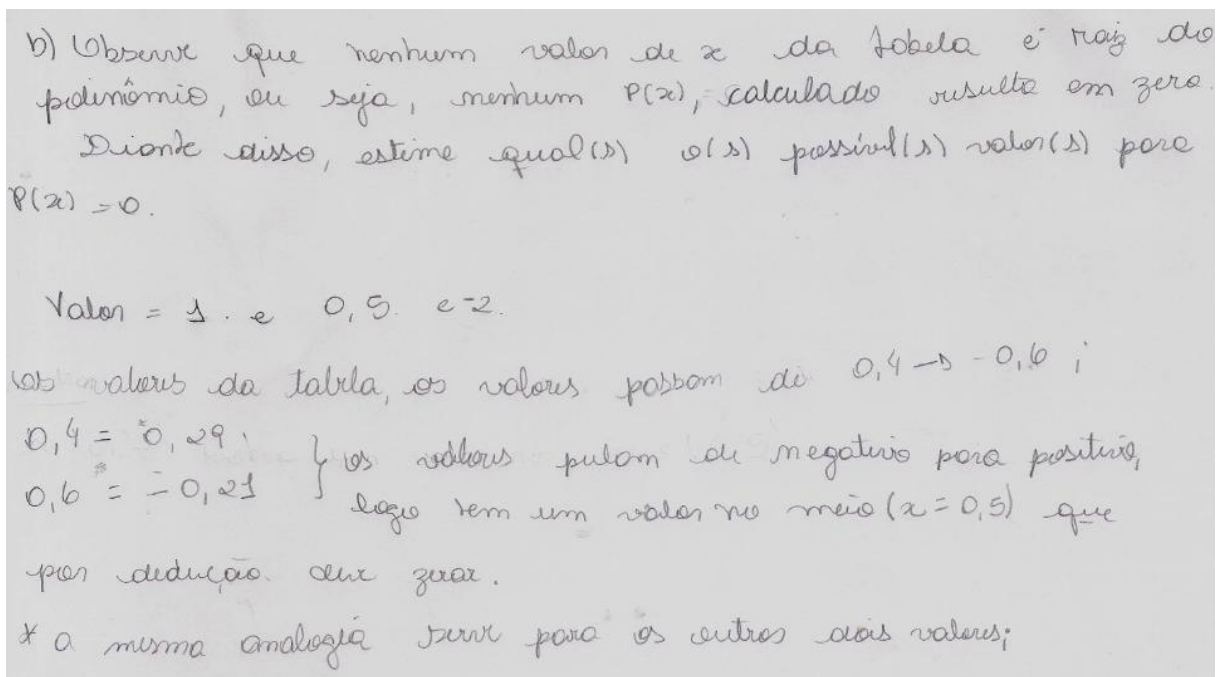 b) Observe que nenhum valor de x da tabela é raiz do
polinômio, ou seja, nenhum P(x), calculado resulta em zero.
Diante disso, estime qual(s) o(s) possível(s) valor(s) para
P(x) = 0.
Valor = 1. e 0,5. e -2.
valores da tabela, os valores passam de 0,4 → -0,6 ;
0,4 = 0,29
0,6 = -0,21 } os valores pulam de negativo para positivo,
logo tem um valor no meio (x = 0,5) que
por dedução. deve zerar.
* a mesma analogia serve para os outros dois valores;